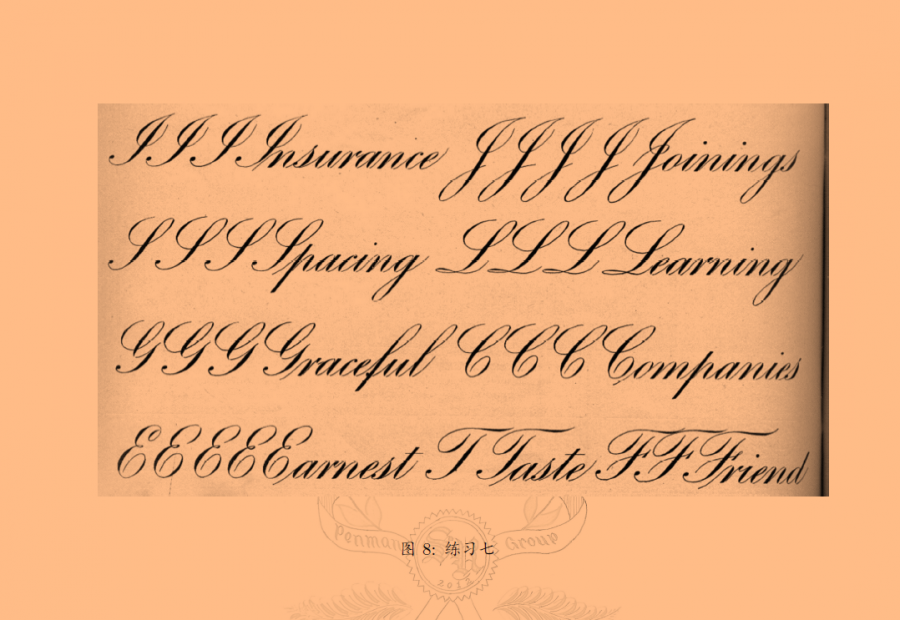 I I I Insurance J J J J Joinings
S S S Spacing L L L Learning
G G G Graceful C C C Companies
E E E E Earnest T Taste F F Friend
Penman Group
2013
图 8: 练习七